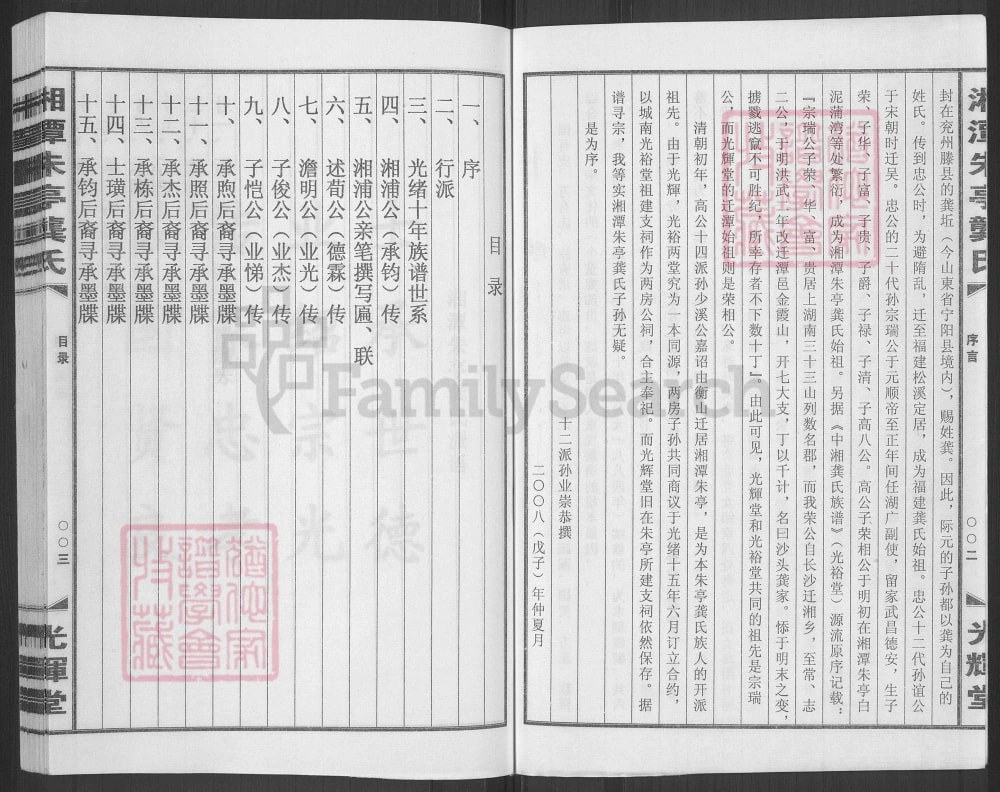 湘潭朱亭龔氏
序言
○○二
光輝堂
封在兖州滕县的龚坵（今山東省宁阳县境内），赐姓龚。因此，际元的子孙都以龚为自己的
姓氏。传到忠公时，为避隋乱，迁至福建松溪定居，成为福建龚氏始祖。忠公十二代孙谊公
于宋朝时迁吴。忠公的二十代孙宗瑞公于元顺帝至正年间任湖广副使，留家武昌德安，生子
荣、子华、子富、子贵、子爵、子禄、子清、子高八公。高公子荣相公于明初在湘潭朱亭白
泥蒲湾等处繁衍，成为湘潭朱亭龚氏始祖。另据《中湘龚氏族谱》（光裕堂）源流原序记载：
『宗瑞公子荣、华、富、贵居上湖南三十三山列数名郡，而我荣公自长沙迁湘乡，至常、志
二公，于明洪武二年改迁潭邑金霞山，开七大支，丁以千计，名曰沙头龚家。悕于明末之变，
掳戮逃窜不可胜纪，所幸存者不下数十丁』。由此可见，光輝堂和光裕堂共同的祖先是宗瑞
公，而光輝堂的迁潭始祖则是荣相公。
清朝初年，高公十四派孙少溪公嘉诏由衡山迁居湘潭朱亭，是为本朱亭龚氏族人的开派
祖先。由于光輝，光裕两堂究为一本同源，两房子孙共同商议于光绪十五年六月订立合约，
以城南光裕堂祖建支祠作为两房公祠，合主奉祀。而光辉堂旧在朱亭所建支祠依然保存。据
谱寻宗，我等实湘潭朱亭龚氏子孙无疑。
是为序。
十二派孙业崇恭撰
二○○八（戊子）年仲夏月
目录
一、序
二、行派
三、光绪十年族谱世系
四、湘浦公（承钧）传
五、湘浦公亲笔撰写匾、联
六、述荀公（德霖）传
七、澹明公（业光）传
八、子俊公（业杰）传
九、子恺公（业悌）传
十、承煦后裔寻承墨牒
十一、承照后裔寻承墨牒
十二、承杰后裔寻承墨牒
十三、承栋后裔寻承墨牒
十四、士璜后裔寻承墨牒
十五、承钧后裔寻承墨牒
湘潭朱亭龔氏
目录
○○三
光輝堂
FamilySearch